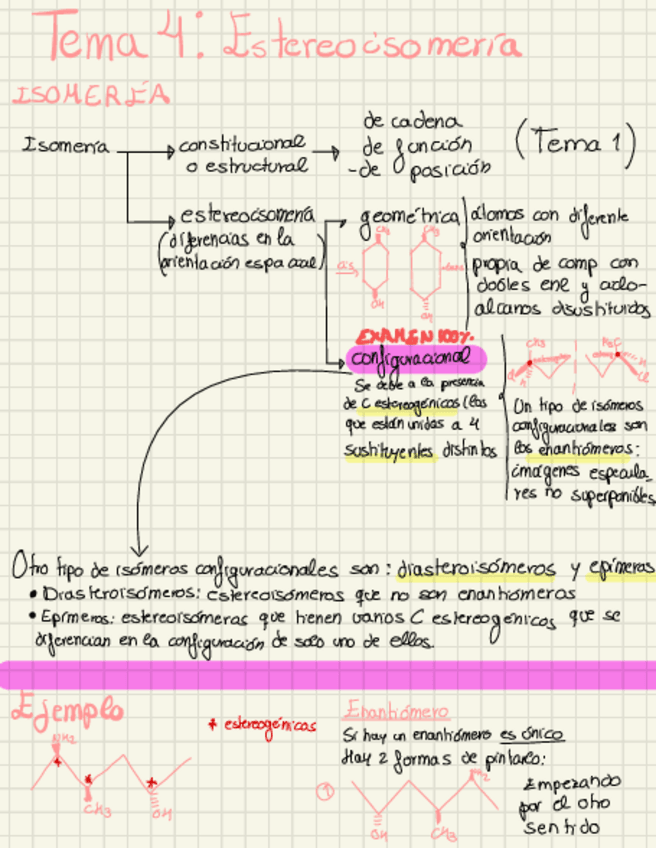 Tema 4: Estereoisomería
ISOMERÍA
Isomería
constitucional
o estructural
de cadena
de función
-de posición
(Tema 1)
estereoisomería
(diferencias en la
orientación espacial)
geométrica
átomos con diferente
orientación
propia de comp con
dobles enl y ciclo-
alcanos disustituidos
CH3
CH3
cis
trans
OH
OH
EXAMEN 100%.
configuracional
Se debe a la presencia
de C estereogénicos (los
que están unidos a 4
sustituyentes distintos
CH3
H3C
Cl
Un tipo de isómeros
configuracionales son
los enantiómeros:
imágenes especula-
res no superponibles
Otro tipo de isómeros configuracionales son: diasteroisómeros y epímeros
• Diasteroisómeros: estereoisómeros que no son enantiómeros
• Epímeros: estereoisómeros que tienen varios C estereogénicos que se
diferencian en la configuración de solo uno de ellos.
Ejemplo
* estereogénicos
NH2
CH3
OH
Enantiómero
Si hay un enantiómero es único
Hay 2 formas de pintarlo:
①
NH2
OH
CH3
Empezando
por el otro
sentido